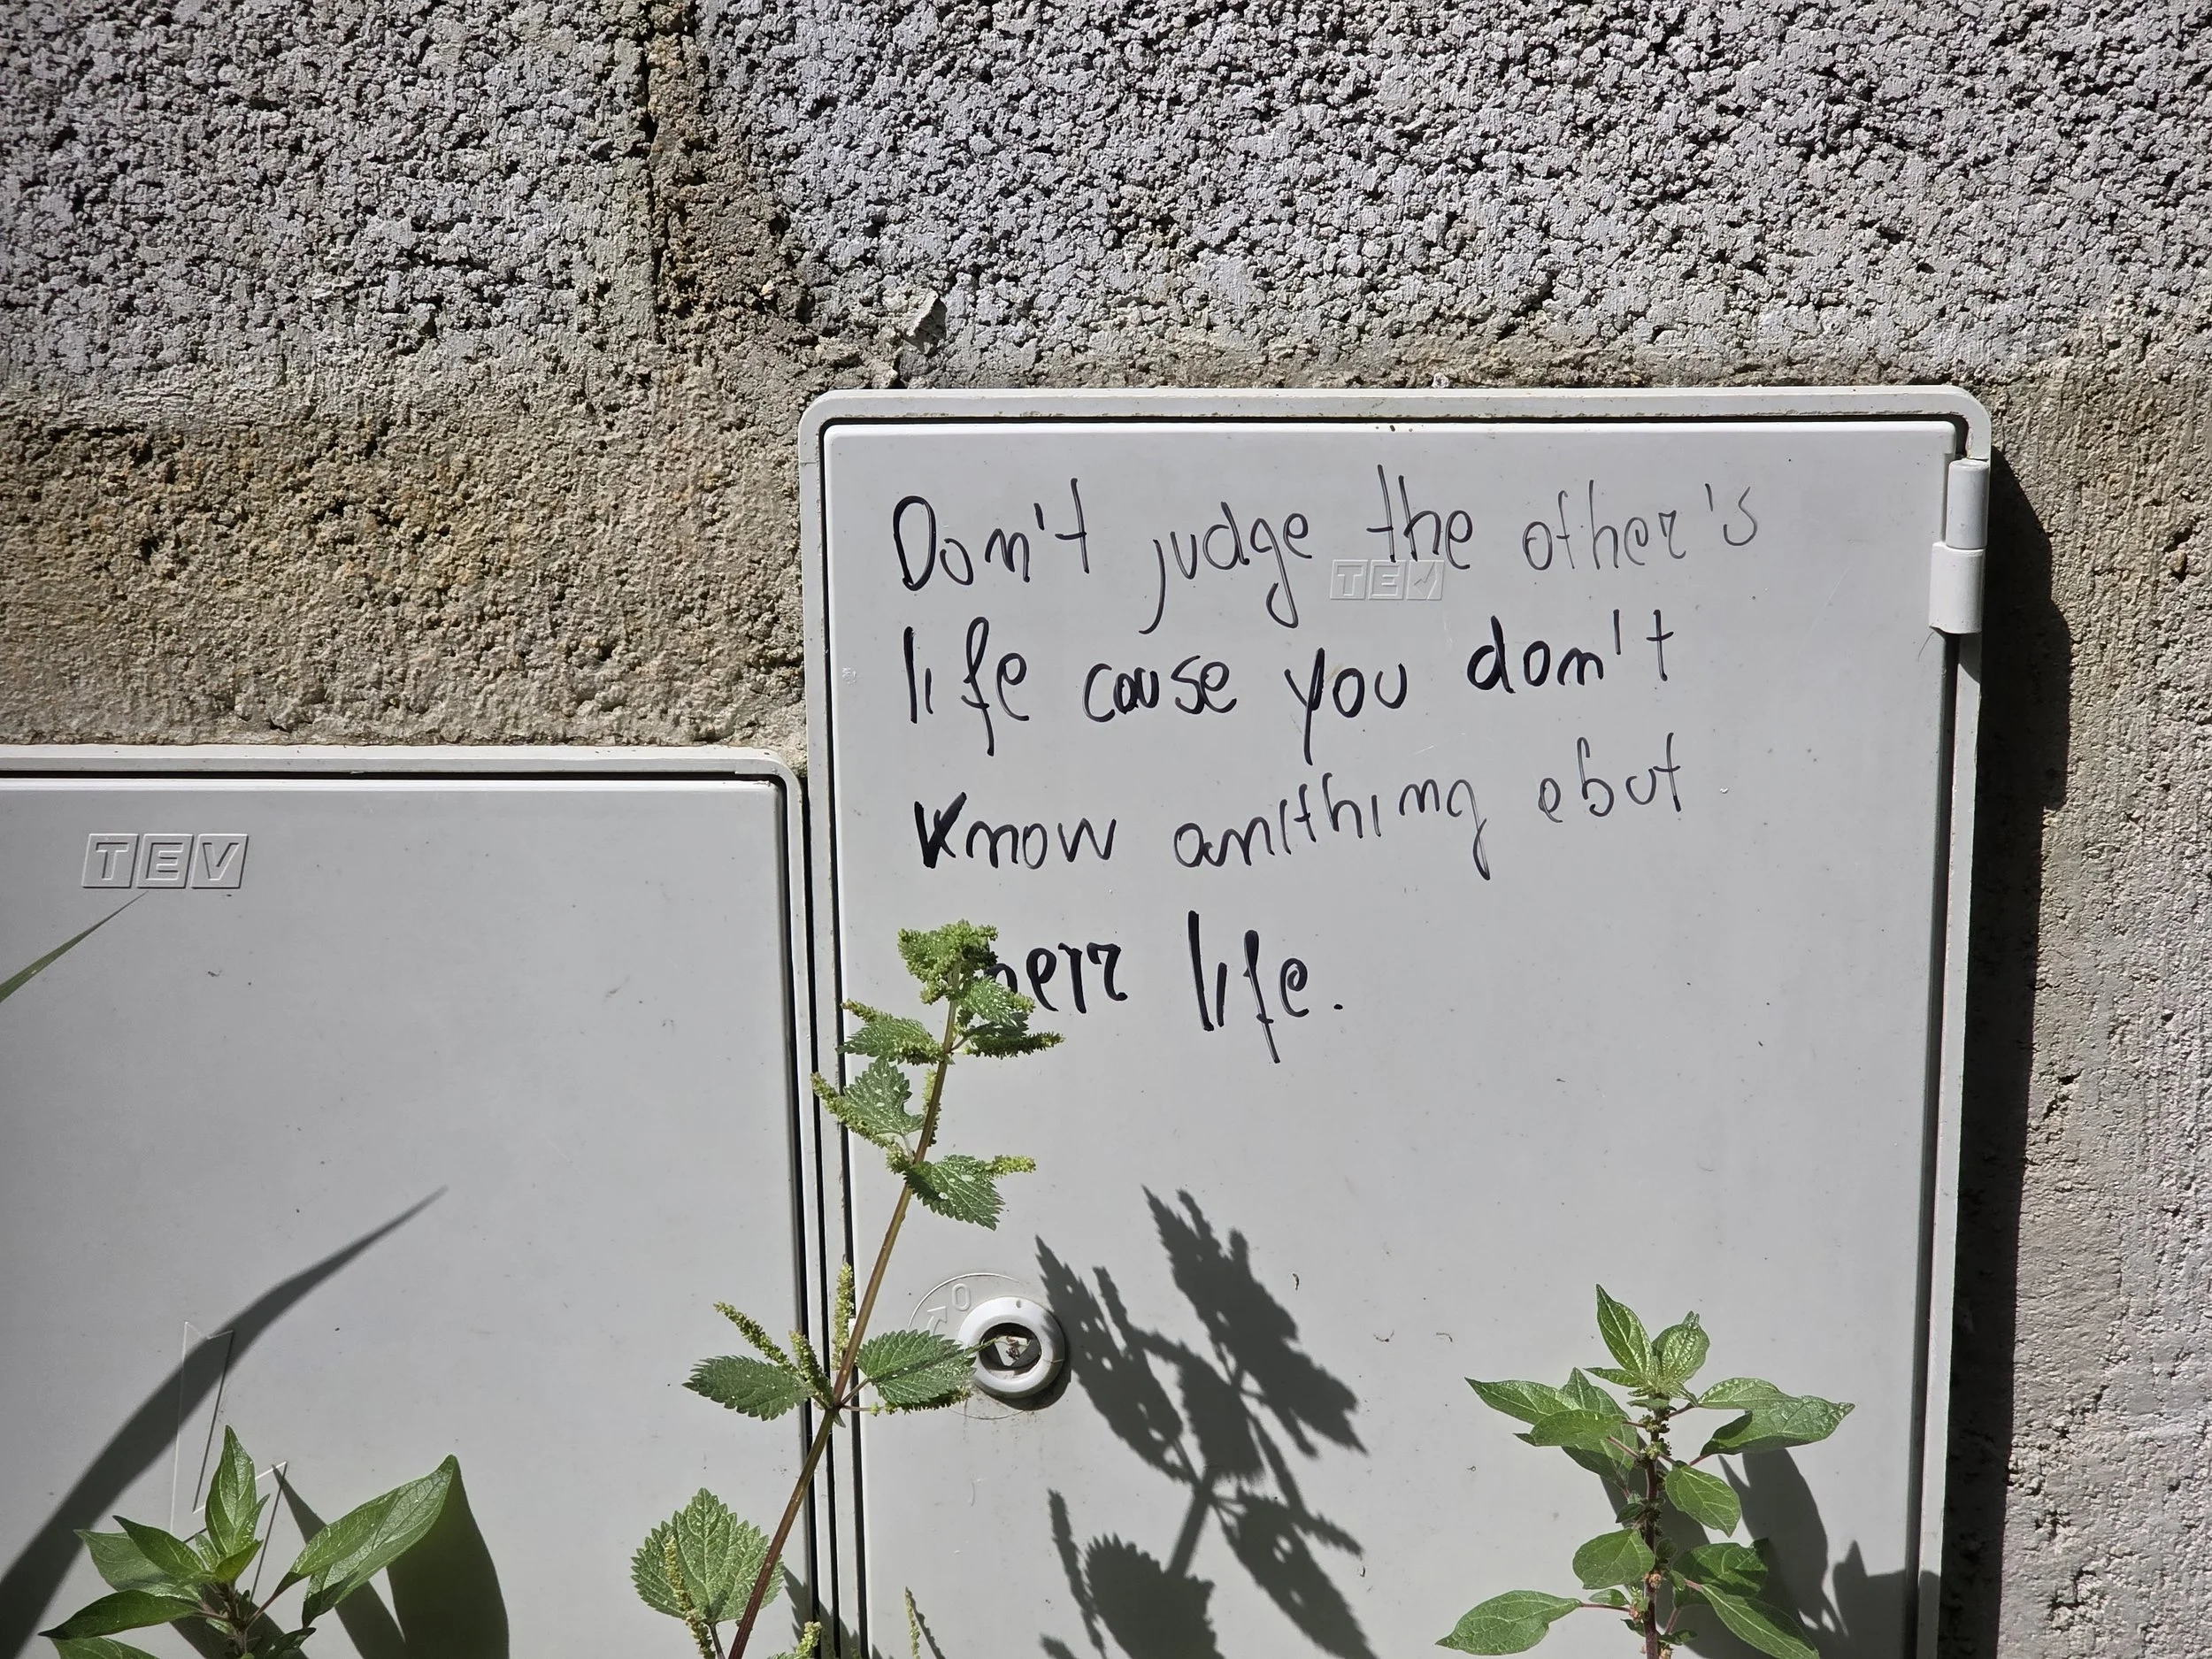 Don't judge the other's
TEV
life cause you don't
know anithing ebut
life.
TEV
O